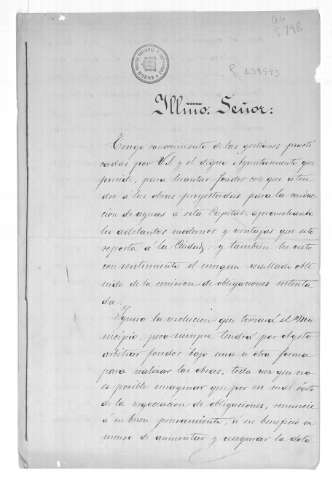 R. 239573
Illmo. Señor:
Tengo conocimiento de las gestiones practi
cadas por V.S. y el digno Ayuntamiento que
preside, para levantar fondos con que aten
der a las obras proyectadas para la conduc
cion de aguas a esta Capital, aprovechando
los adelantos modernos y ventajas que esto
reporta á la Ciudad, y tambien he visto
con sentimiento el ningun resultado obte
nido de la emision de obligaciones intenta
da.
Ignoro la resolucion que tomará el Muni
cipio, pero siempre tendrá por objeto
arbitrar fondos bajo una u otra forma
para realizar las obras, toda vez que no
es posible imaginar que por el mal éxito
de la negociacion de obligaciones, renuncie
á su buen pensamiento, a su beneficio in
menso de aumentar y asegurar la dota